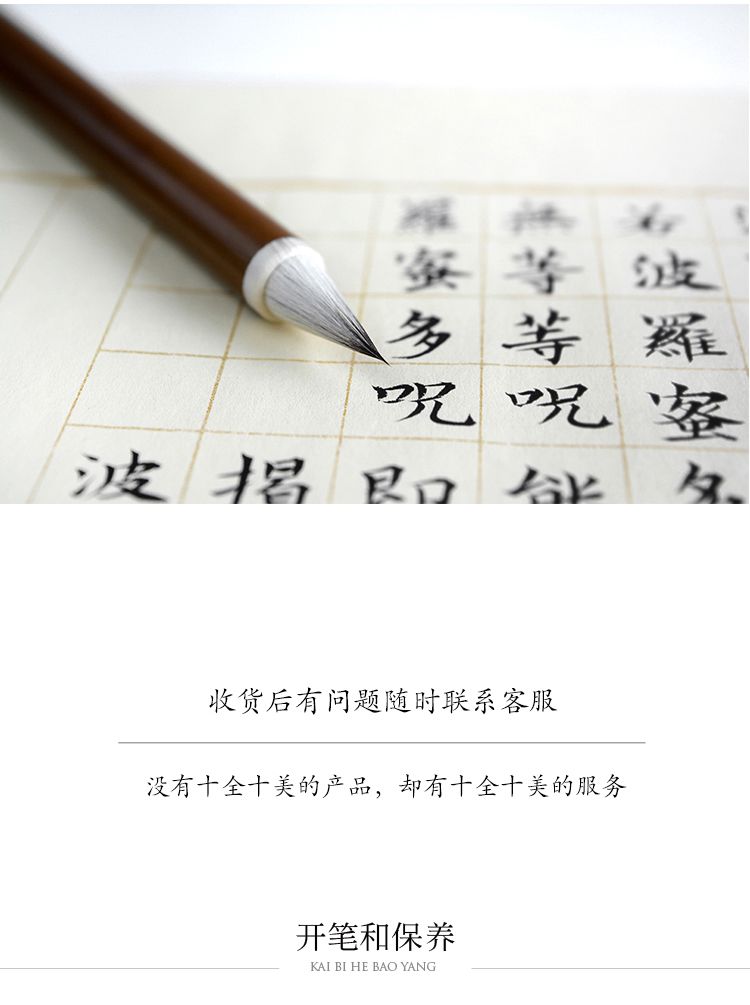 羅 無 若
蜜 等 波
多 等 羅
呪 呪 蜜
波 揭 即 能 多
收货后有问题随时联系客服
没有十全十美的产品，却有十全十美的服务
开笔和保养
KAI BI HE BAO YANG